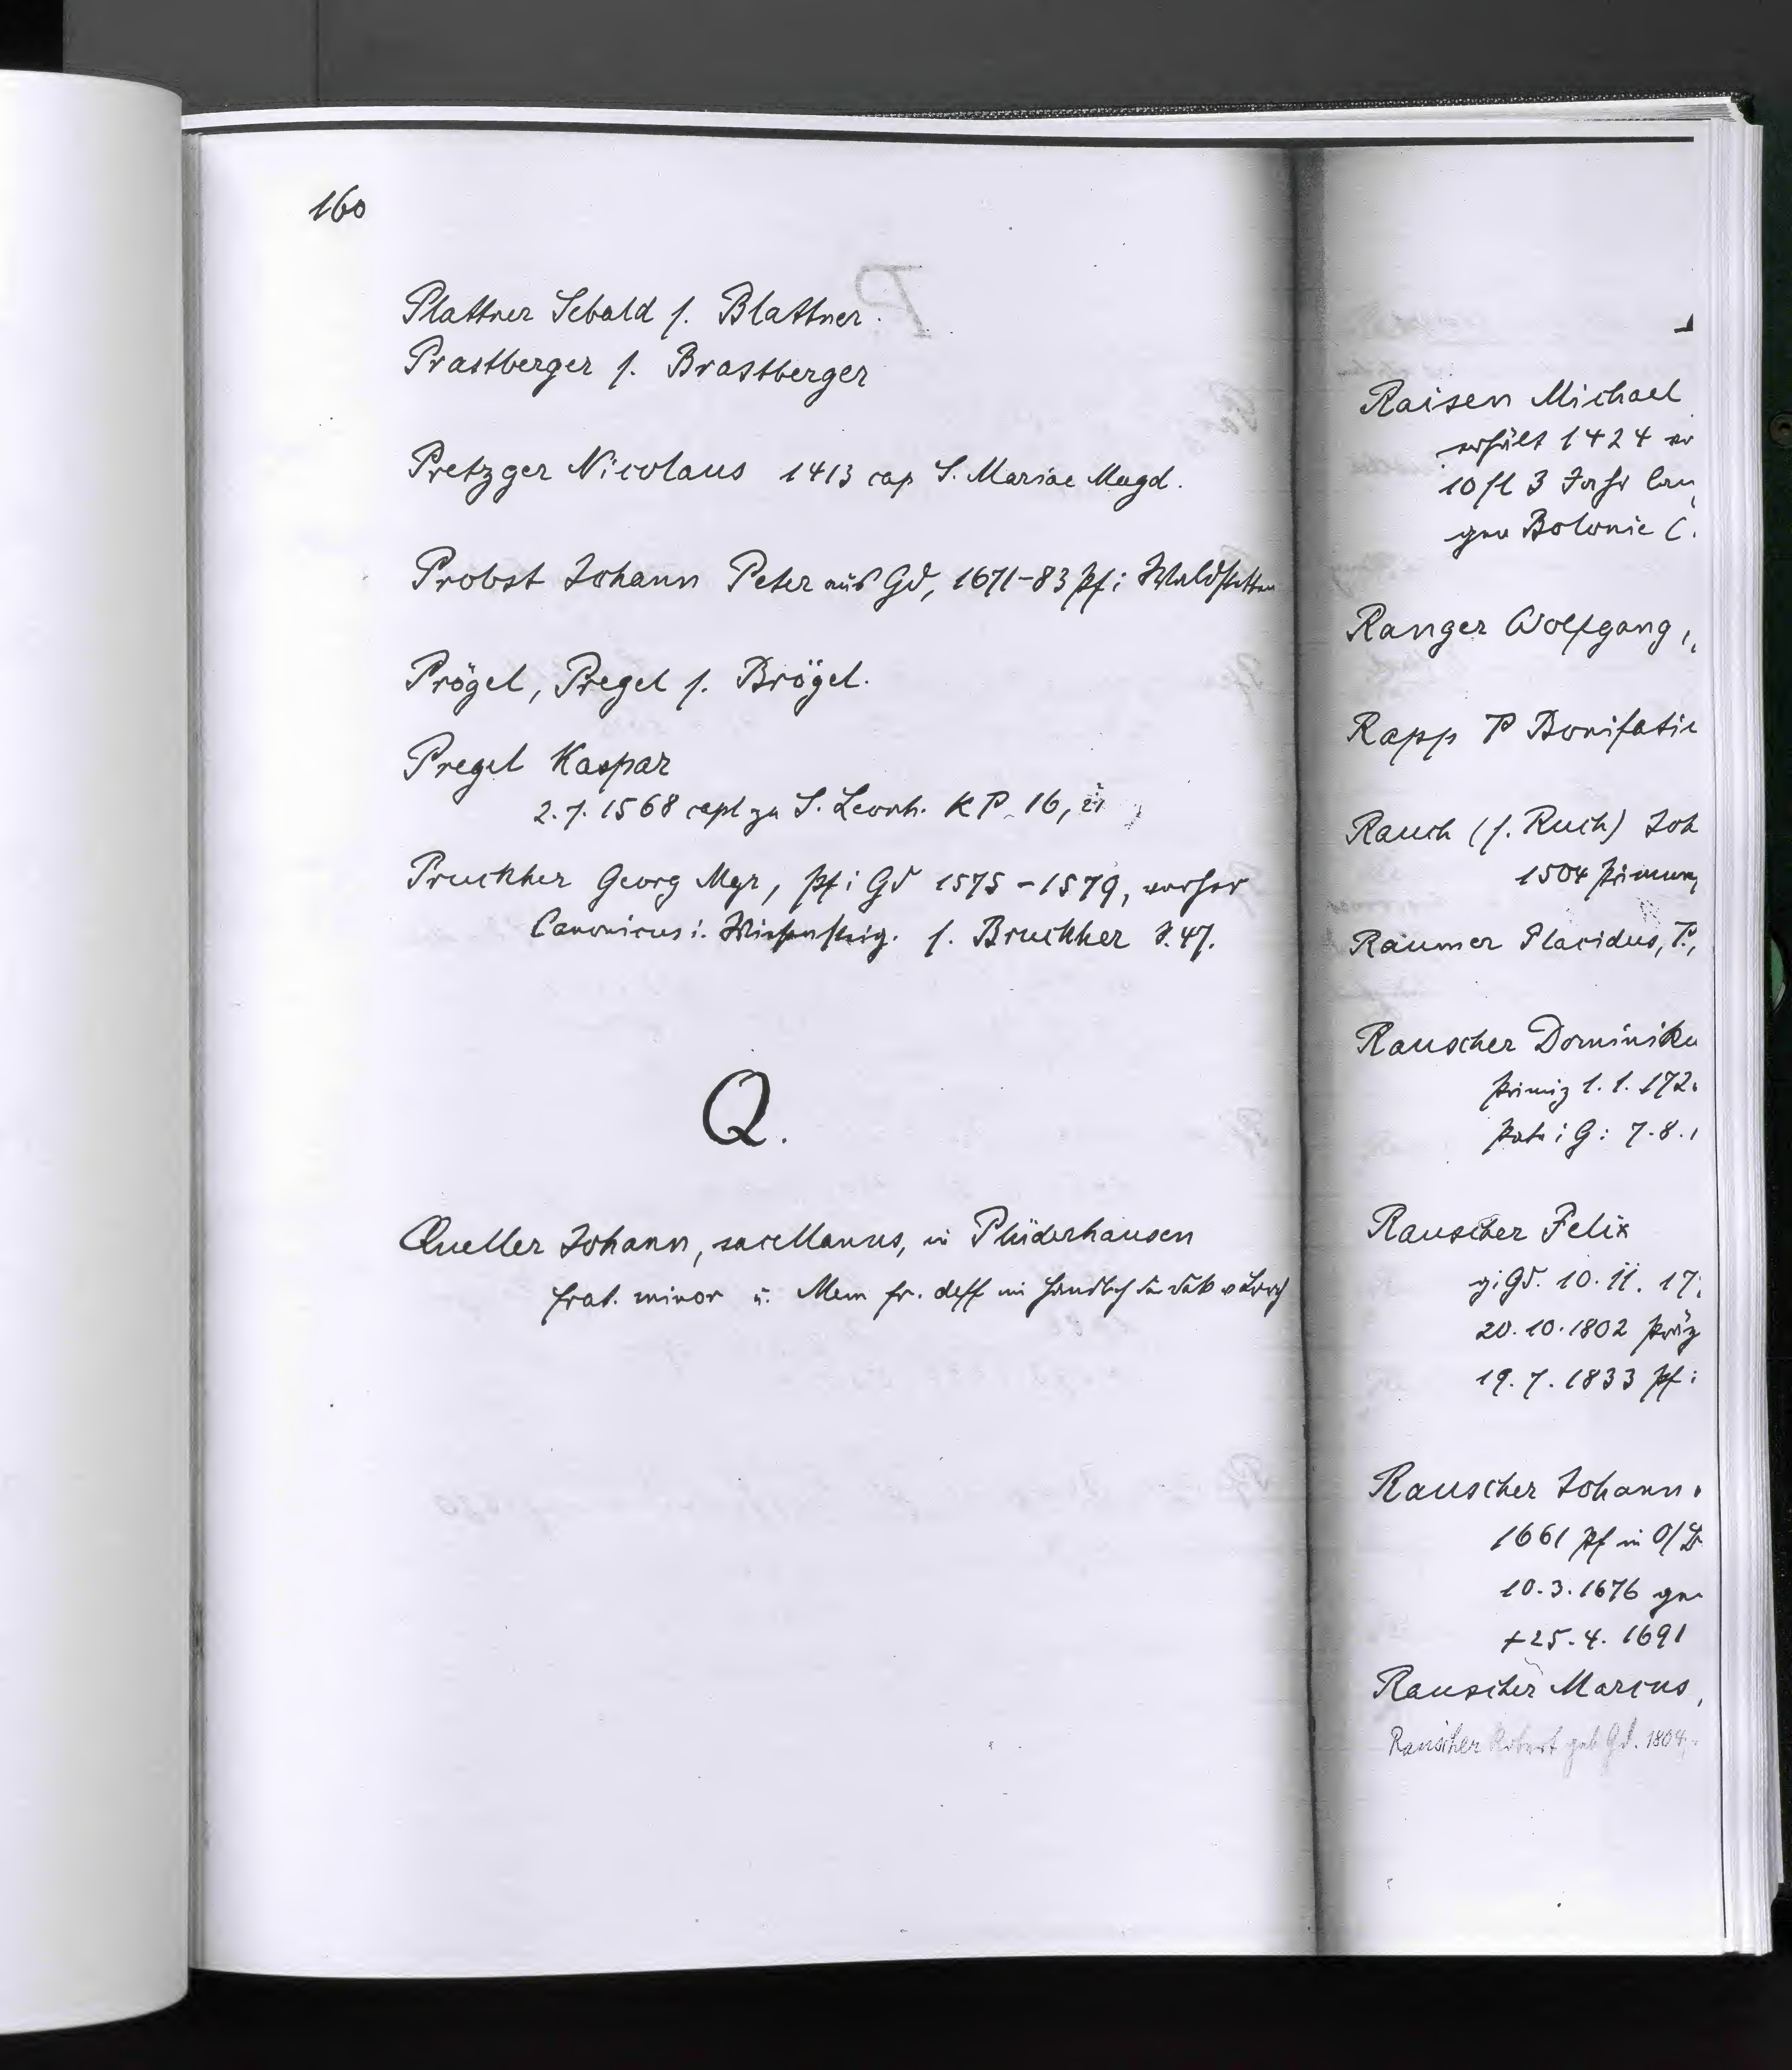 160
Plattner Sebald s. Blattner.
Prastberger s. Brastberger
Pretzger Nicolaus 1413 cap S. Mariae Magd.
Probst Johann Peter aus Gd, 1671-83 Pf i Waldstetten
Prögel, Pregel s. Brögel.
Pregel Kaspar
2.7.1568 capl zu S. Leonh. KP 16,
Pruckher Georg Mgr, Pf i Gd 1575-1579, vorher
Canonicus i. Wiesensteig. s. Bruckher S. 47.
Q.
Queller Johann, sacellanus, in Plüderhausen
frat. minor u. Mem fr. deff im
Raisen Michael
erhält 1424
10 fl 3 Jahr
gen Bolonie
Ranger Wolfgang,
Rapp P Bonifatie
Rauch (s. Ruch) Joh
1504
Raumer Placidus, P.,
Rauscher Dominiku
Primiz 1.1.172
i G: 7.8.
Rauscher Felix
Gd. 10.11.17
20.10.1802
19.7.1833 Pf i
Rauscher Johann
1661 Pf in O/B
10.3.1676
+25.4.1691
Rauscher Marcus,
Rauscher Robert geb Gd. 1804,